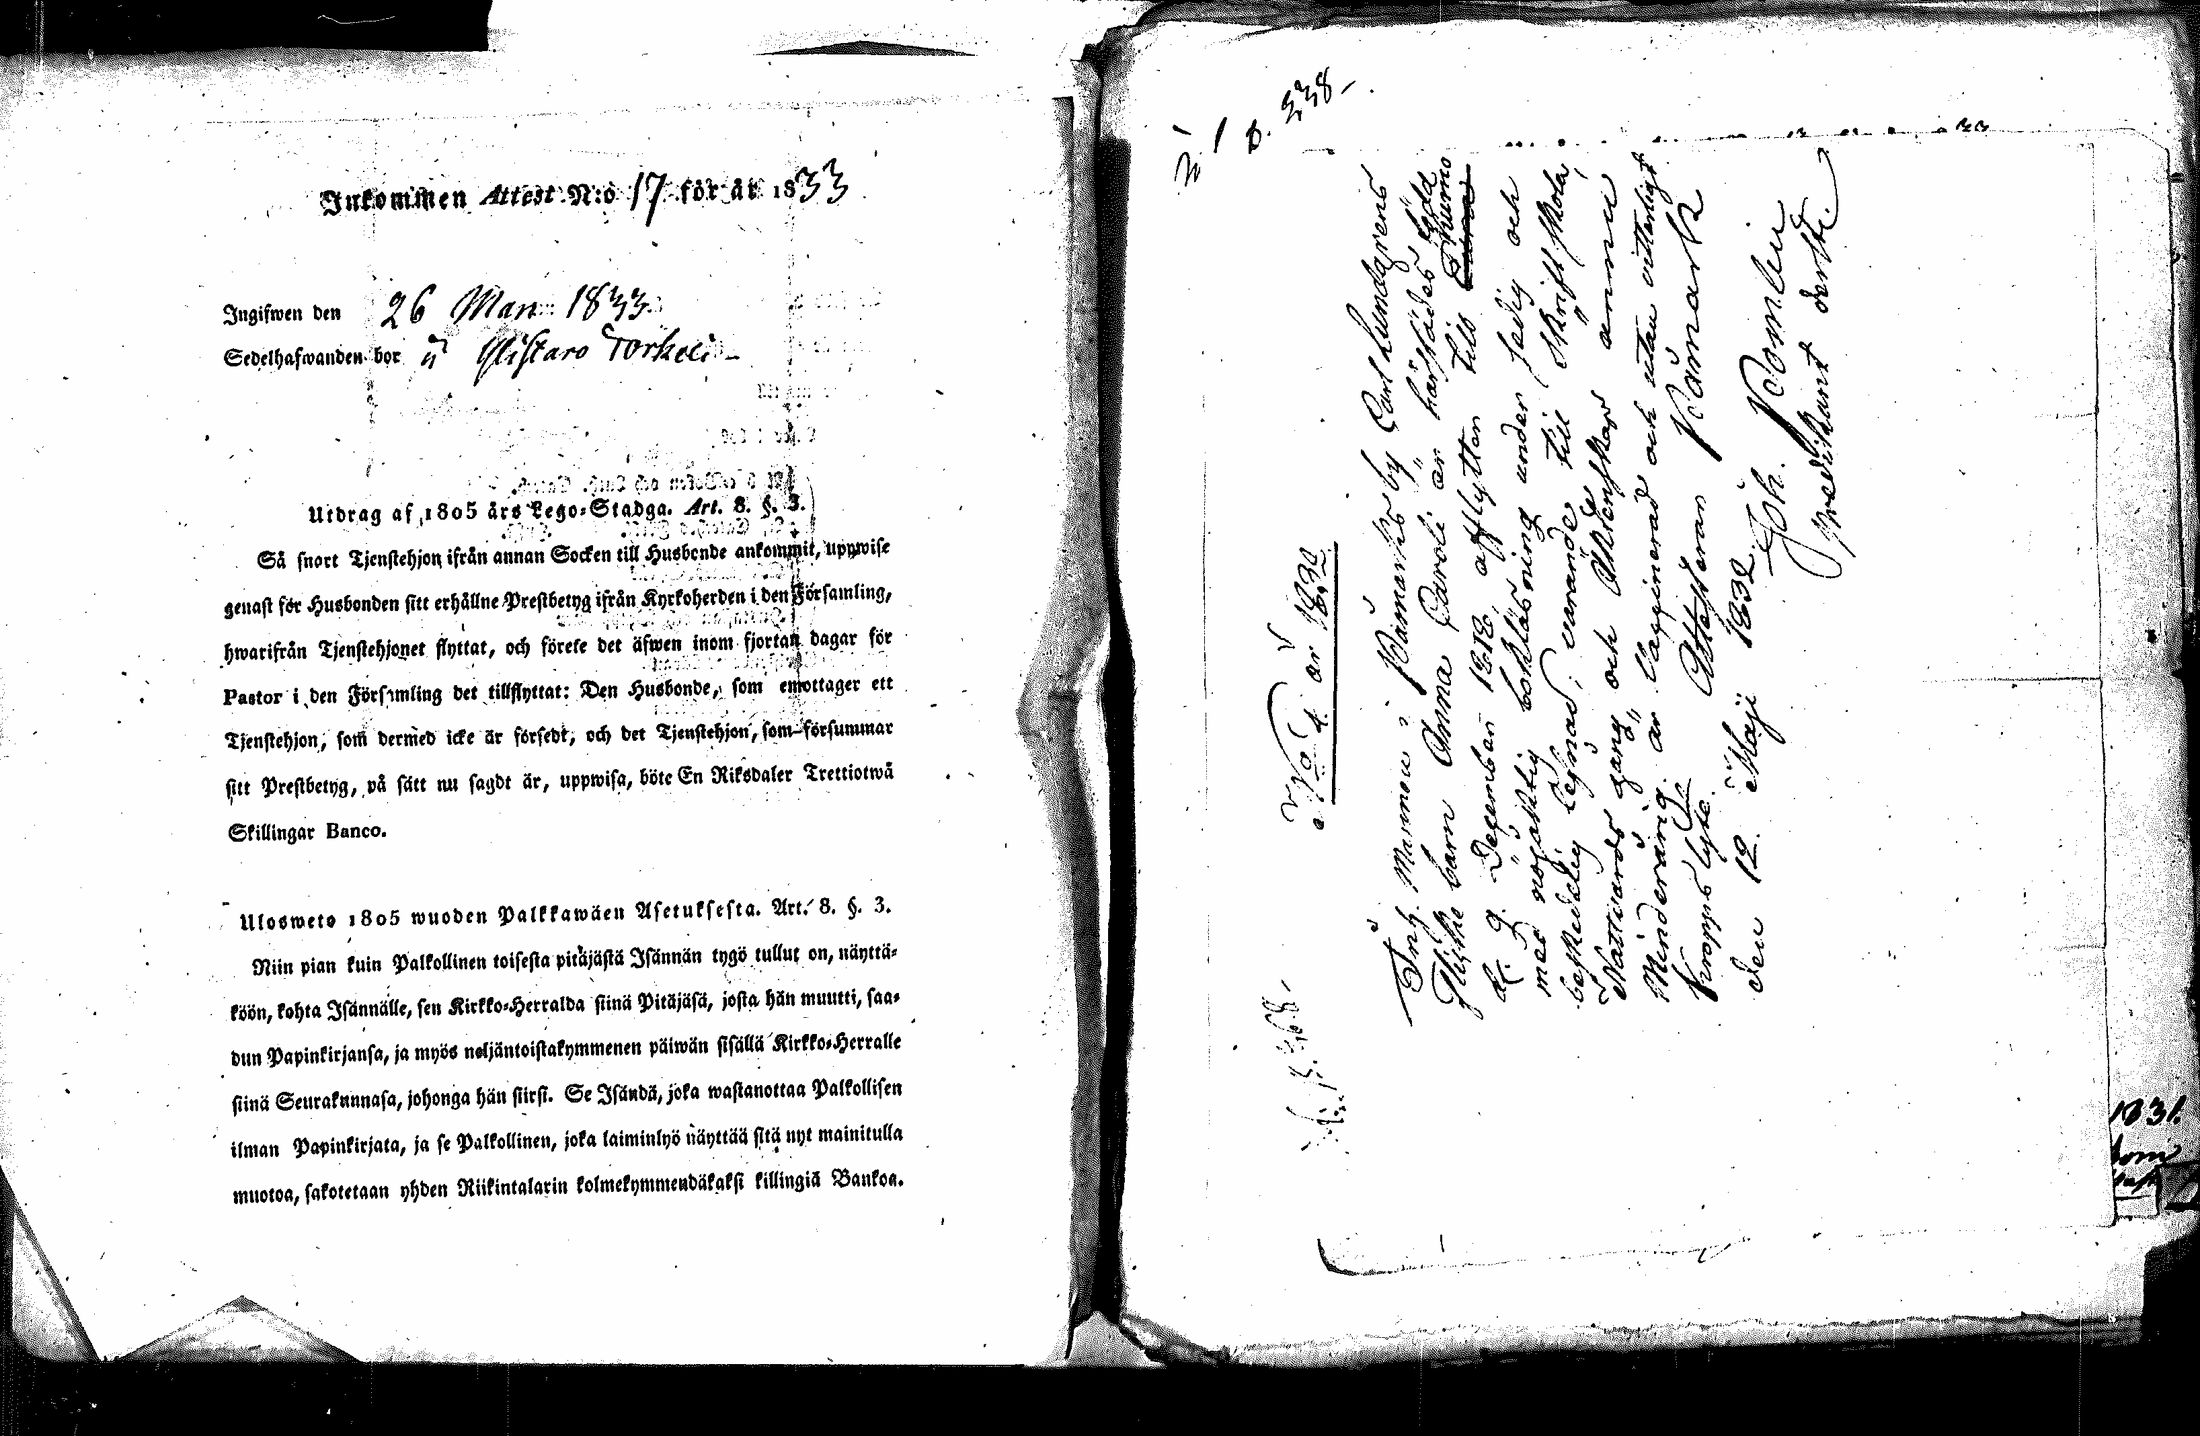 Inkommen Attest N:o 17 för år 1833
Ingifwen den 26 Mars 1833
Sedelhafwanden bor å Torkeli
Utdrag af 1805 års Lego-Stadga. Art. 8. §. 3.
Så snart Tjenstehjon ifrån annan Socken till Husbonde ankommit, uppwise
genast för Husbonden sitt erhållne Prestbetyg ifrån Kyrkoherden i den Församling,
hwarifrån Tjenstehjonet flyttat, och förete det äfwen inom fjortan dagar för
Pastor i den Församling det tillflyttat: Den Husbonde, som emottager ett
Tjenstehjon, som dermed icke är försedt, och det Tjenstehjon, som försummar
sitt Prestbetyg, på sätt nu sagdt är, uppwisa, böte En Riksdaler Trettiotwå
Skillingar Banco.
Ulosweto 1805 wuoden Palkkawäen Asetuksesta. Art. 8. §. 3.
Niin pian kuin Palkollinen toisesta pitäjästä Isännän tygö tullut on, näyttä-
köön, kohta Isännälle, sen Kirkko-Herralda siinä Pitäjäsä, josta hän muutti, saa-
dun Papinkirjansa, ja myös neljäntoistakymmenen päiwän sisällä Kirkko-Herralle
siinä Seurakunnasa, johonga hän siirsi. Se Isändä, joka wastanottaa Palkollisen
ilman Papinkirjata, ja se Palkollinen, joka laiminlyö näyttää sitä nyt mainitulla
muotoa, sakotetaan yhden Riikintalarin kolmekymmendäkaksi killingiä Bankoa.
N. 1 p. 338
No 4 år 1832
p. 268
Inh. Mannen i Kämarks by Carl Lundgrens
barn Anna Caroli är härstädes född
d. 9 December 1818, afflyttar till Thumo
med nöjaktig bokläsning under sedig och
beskedelig lefnad; varande till Skriftskola,
Nattvards gång och Äktenskap ännu
Minderårig, är Vaccinerad och utan vitterligt
kropps lyte. Attesteras Kämark
den 12 Maji 1832
Joh. Homlin
Predikant derst.
1831.